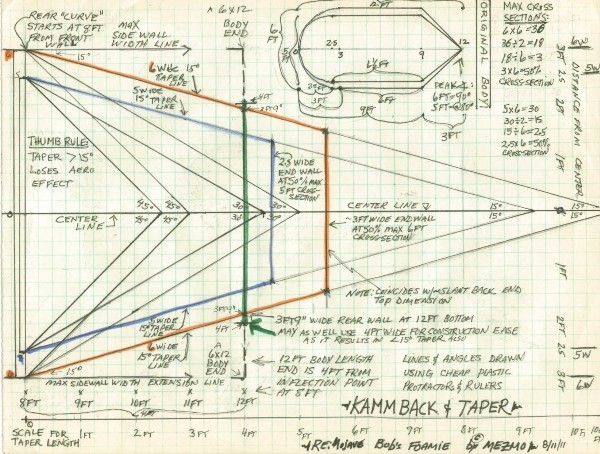 REAR "CURVE"
STARTS AT 8FT
FROM FRONT
WALL
MAX
SIDE WALL
WIDTH LINE
A 6X12
BODY
END
15°
6 WIDE 15°
TAPER
LINE
5 WIDE
15° TAPER
LINE
4FT
3FT 9"
THUMB RULE:
TAPER > 15°
LOSES AERO
EFFECT
2.5 WIDE
END WALL
AT 50% MAX
5FT CROSS-
SECTION
12FT
6FT
5FT
2.5
3
9
12
6FT
3FT
9FT
3FT
PEAK
6FT=90°
5FT=80°
ORIGINAL BODY
MAX CROSS
SECTIONS:
6X6=36
36÷2=18
18÷6=3
3X6=50%
CROSS-SECTION
5X6=30
30÷2=15
15÷6=2.5
2.5X6=50%
CROSS-SECTION
6W
5W
3FT
2.5
2FT
1FT
DISTANCE FROM CENTER
CENTER
LINE
45°
45°
45°
45°
30°
30°
30°
30°
CENTER LINE
15°
15°
15°
15°
~3FT WIDE END WALL
AT 50% MAX 6FT
CROSS-SECTION
NOTE: COINCIDES W/ SLANT BACK END
TOP DIMENSION
5 WIDE
15° TAPER
LINE
6 WIDE
15° TAPER
LINE
15°
A
6X12
BODY
END
3FT 9"
4FT
3FT9" WIDE REAR WALL AT 12FT BOTTOM
MAY AS WELL USE 4FT WIDE FOR CONSTRUCTION EASE
AS IT RESULTS IN <15° TAPER ALSO
1FT
2FT
2.5
3FT
5W
6W
12FT BODY LENGTH
END IS 4FT FROM
INFLECTION POINT
AT 8FT
LINES & ANGLES DRAWN
USING CHEAP PLASTIC
PROTRACTORS & RULERS
MAX SIDEWALL WIDTH EXTENSION LINE
8FT
9FT
10FT
11FT
12FT
4FT
KAMMBACK & TAPER
0
SCALE FOR
TAPER LENGTH
1FT
2FT
3FT
4FT
5FT
6FT
7FT
8FT
9FT
10FT
RE: MOJAVE BOB'S FOAMIE © BY MEZMO 8/11/11